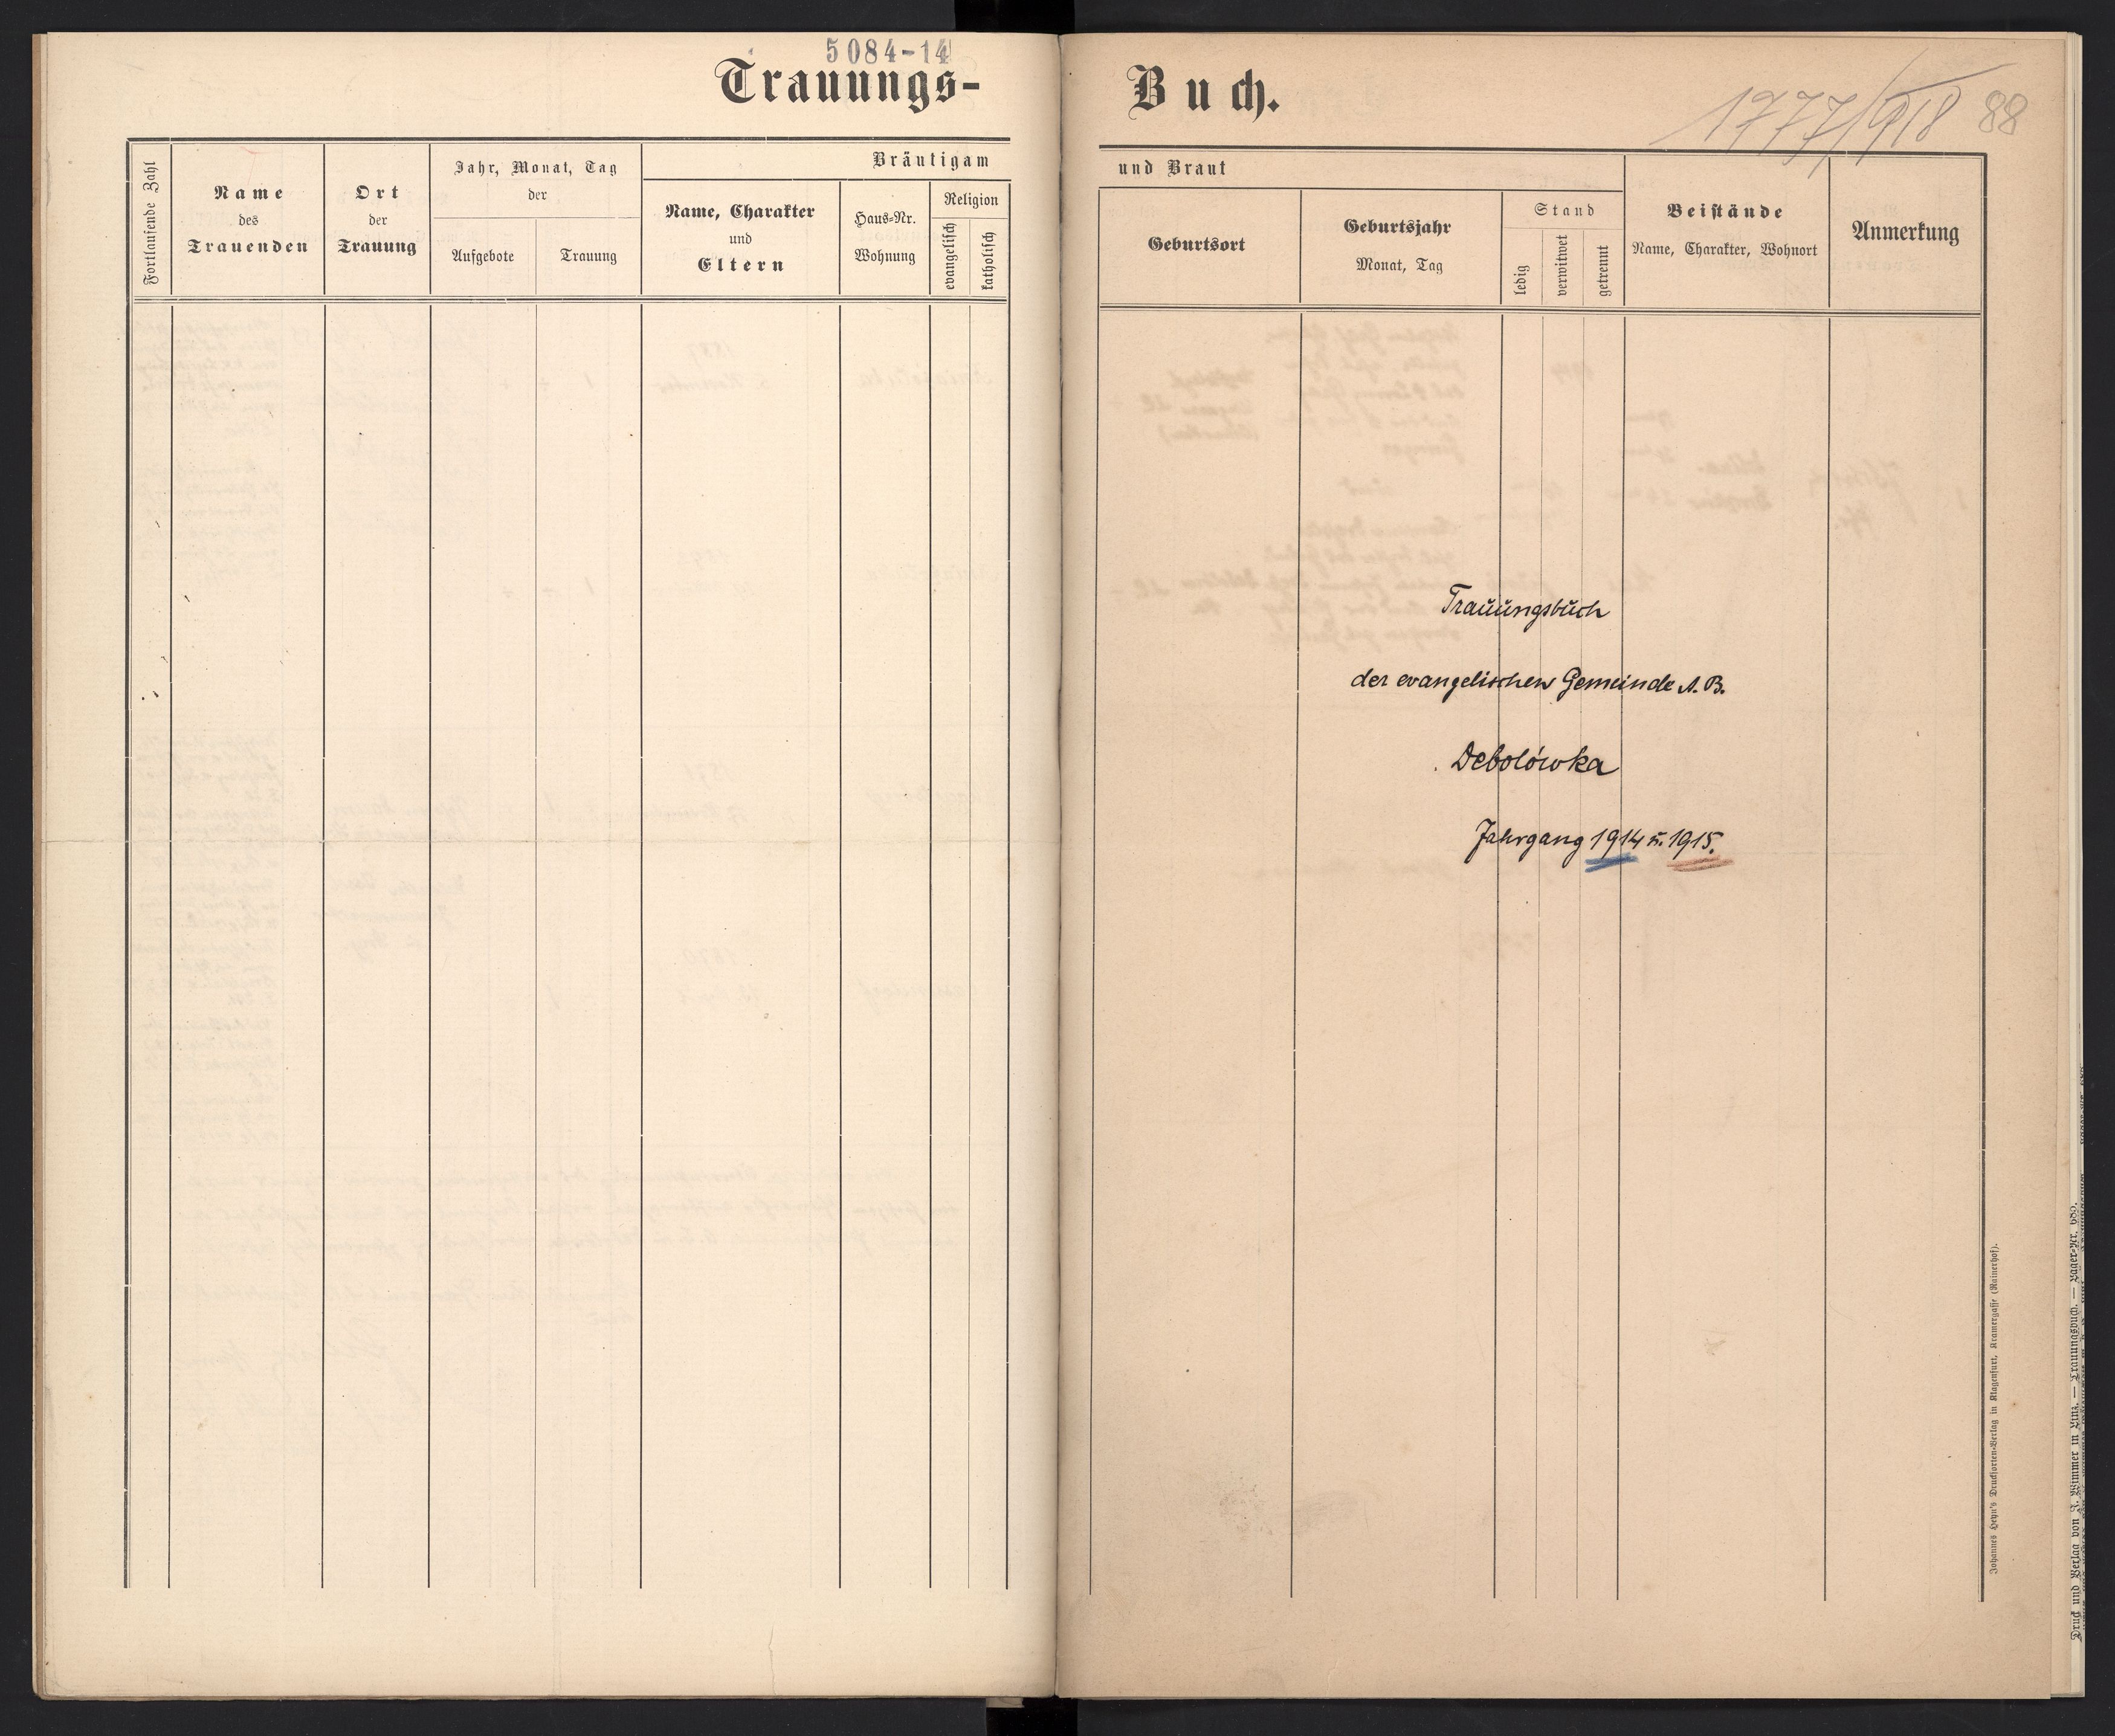 5084-14
Trauungs-
Fortlaufende Zahl
Name
des
Trauenden
Ort
der
Trauung
Jahr, Monat, Tag
der
Aufgebote
Trauung
Bräutigam
Name, Charakter
und
Eltern
Haus-Nr.
Wohnung
Religion
evangelisch
katholisch
Buch.
1777/918 88
und Braut
Geburtsort
Geburtsjahr
Monat, Tag
Stand
ledig
verwitwet
getrennt
Beistände
Name, Charakter, Wohnort
Anmerkung
Trauungsbuch
der evangelischen Gemeinde A. B.
Debolówka
Jahrgang 1914 u. 1915.
Johannes Heyn's Drucksorten-Verlag in Klagenfurt, Kramergasse (Rainerhof).
Druck und Verlag von J. Wimmer in Linz. — Trauungsbuch. — Lager-Nr. 685.